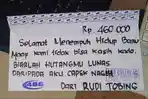 Rp 460.000
Selamat Menempuh Hidup Baru
Maaf kami tidak bisa kasih kado.
BIARLAH HUTANGMU LUNAS
DARIPADA AKU CAPEK NAGIH
DARI RUDI TOBING